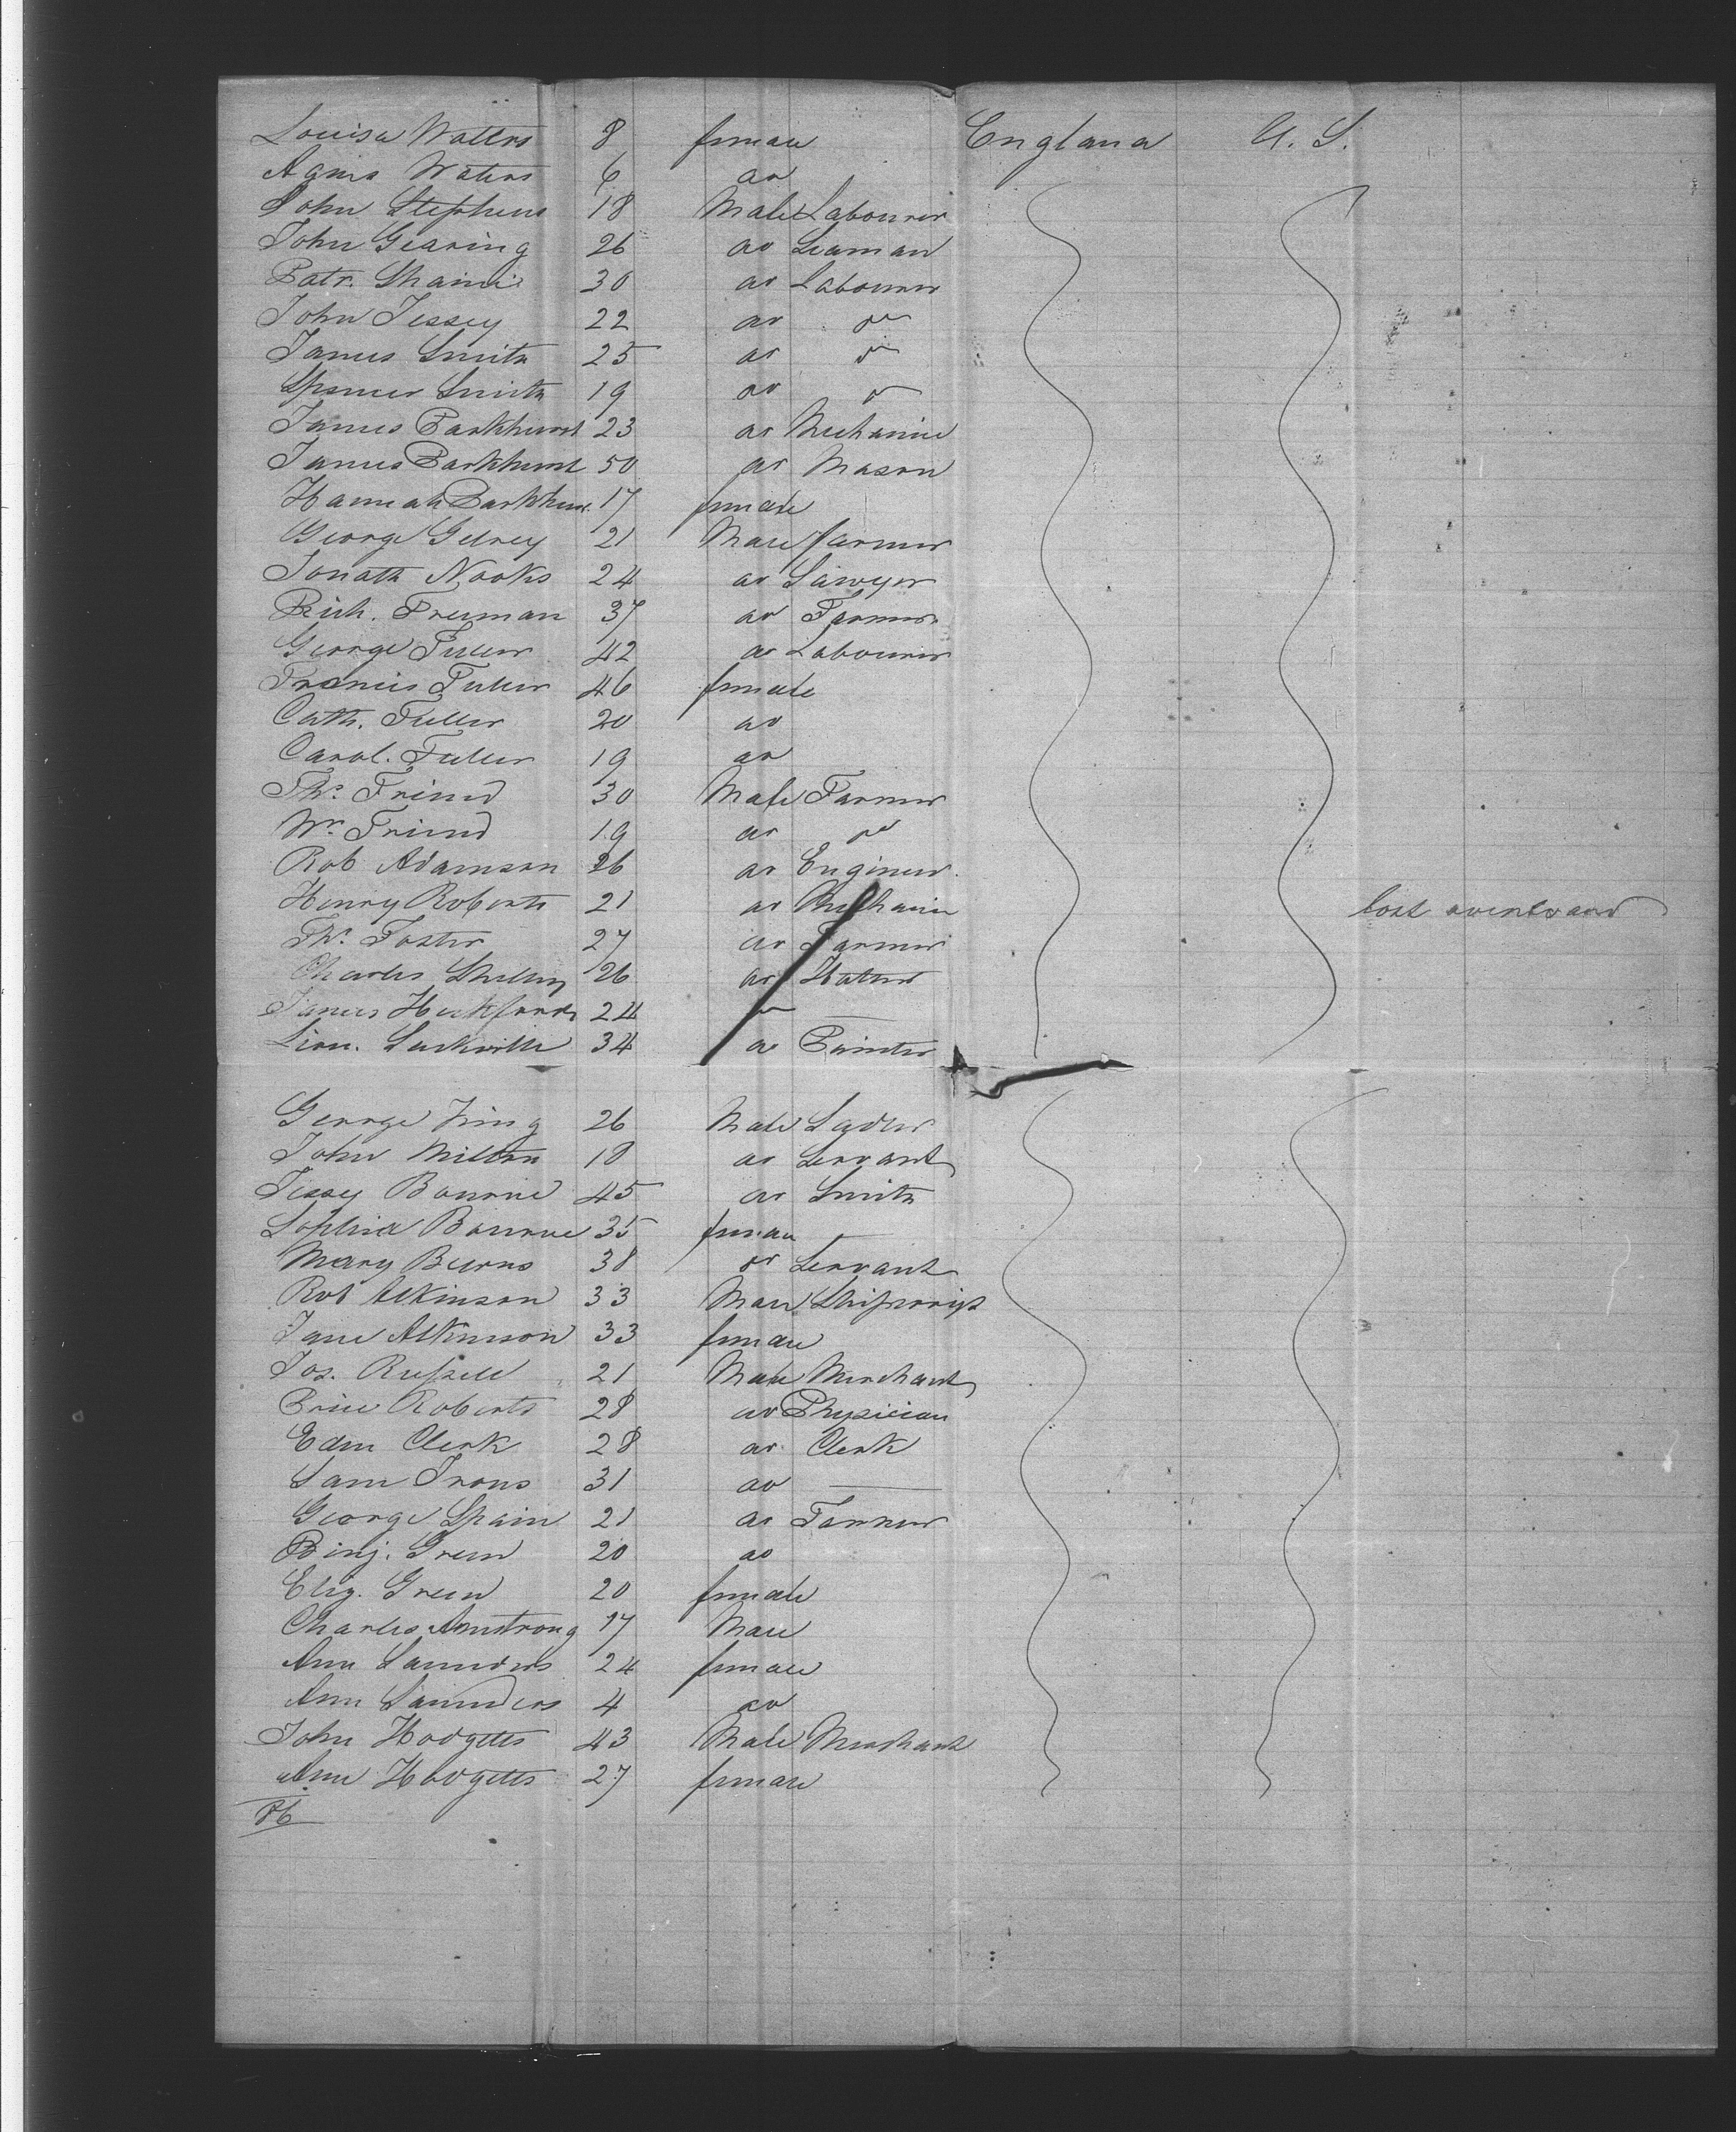 Louisa Watters 8 female England U. S.
Agnes Waters 6 do
John Stephens 18 Male Labourer
John Gearing 26 do Seaman
Patr. 30 do Labourer
John Jessey 22 do do
James Smith 25 do do
Spencer Smith 19 do do
James Parkhurst 23 do Mechanic
James Parkhurst 50 do Mason
Hannah Parkhurs. 17 female
George 21 Male farmer
Jonath Nooks 24 do Sawyer
Rich. Freeman 37 do Farmer
George Fuller 42 do Labourer
Francis Fuller 46 female
Cath. Fuller 20 do
Carol. Fuller 19 do
Thr. Friend 30 Male Farmer
Wr. Friend 19 do do
Rob Adamson 26 do Engineer.
Henry Roberts 21 do Mechanic lost overboard
Thr. Foster 27 do Farmer
Charles 26 do Hatter
James 24 do —
34 do Painter
George King 26 Male Sadler
John Milton 18 do Servant
Jessey Bourne 45 do Smith
Sophia Bourne 35 female
Mary Burns 38 do Servant
Rob Atkinson 33 Male Shipwright
Jane Atkinson 33 female
Jos. Russell 21 Male Merchant
Price Roberts 28 do Physician
Edm Clerk 28 do Clerk
Sam Irons 31 do —
George Spain 21 do Farmer
Binj. Green 20 do
Eliz. Green 20 female
Charles Amstrong 17 Male
Ann Saunders 24 female
Ann Saunders 4 do
John Hodgetts 43 Male Merchant
Ann Hodgetts 27 female
86